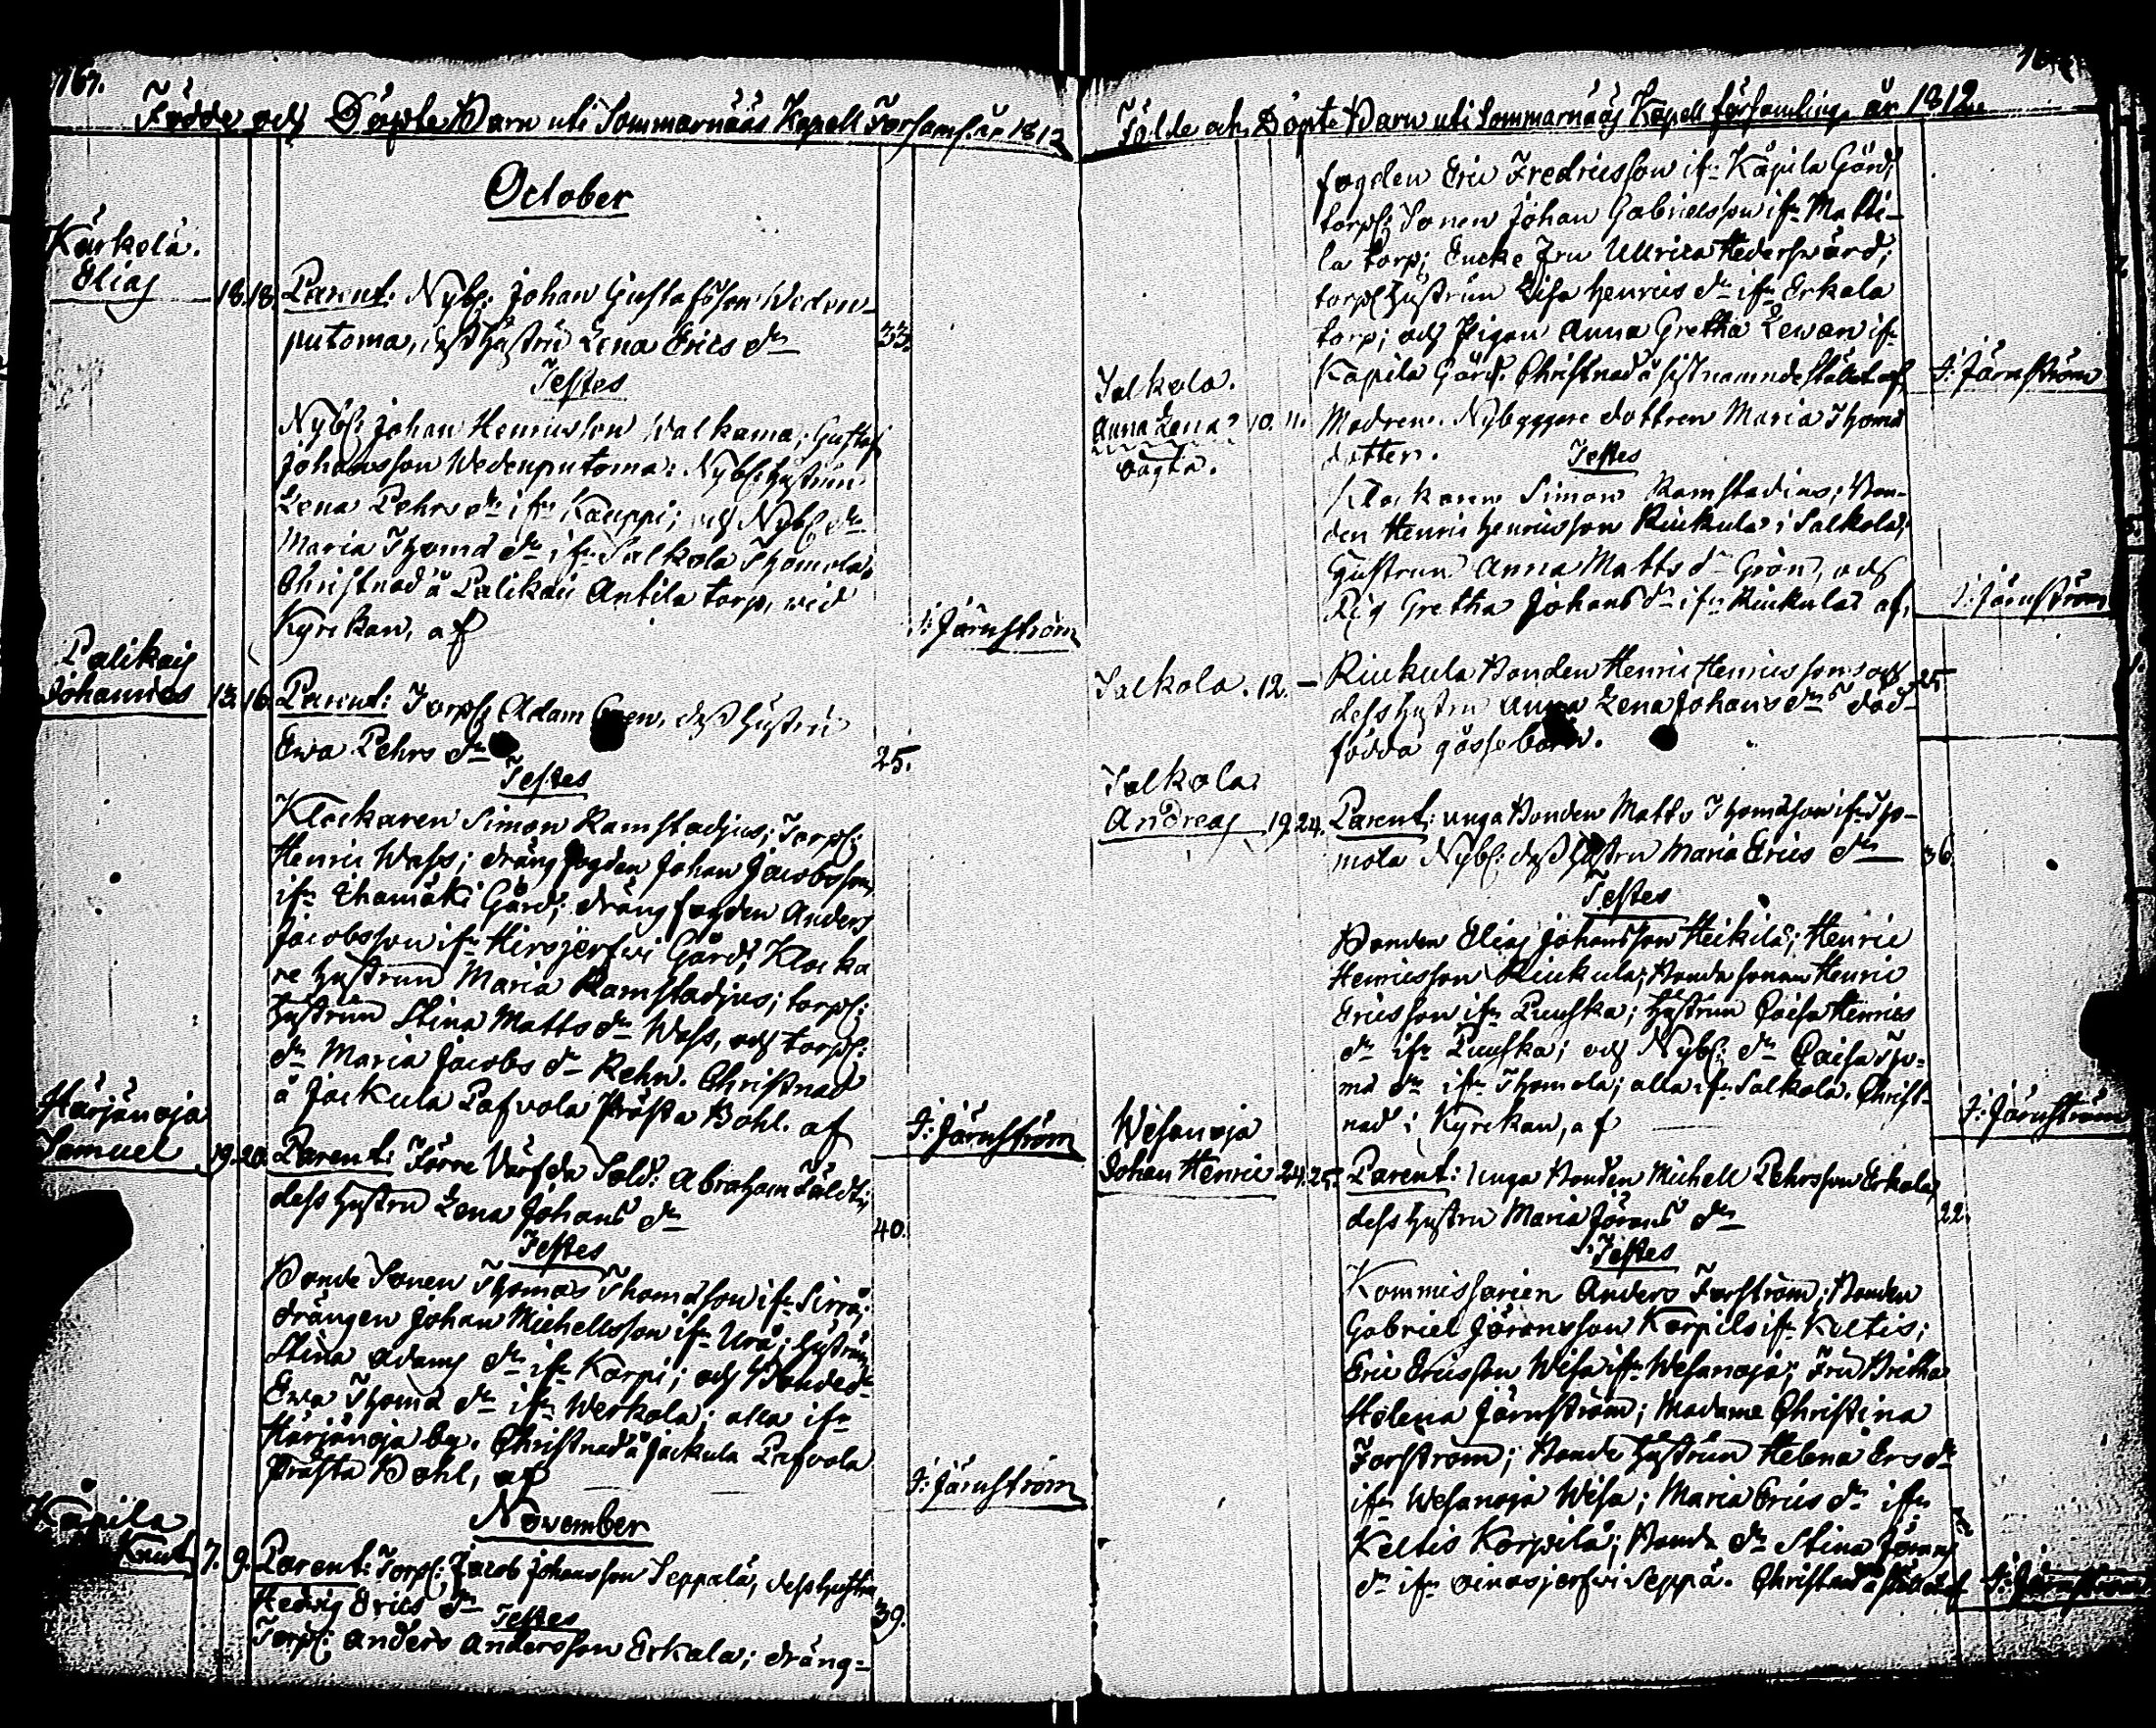 167.
Födde och Döpte Barn uti Sommarnääs Kapell Församl. år 1812
October
Kärkelä.
Elias 18. 18. Parent: Nybs: Johan Gustafsson Weden-
putoma, dess Hustru Lena Erics dr 33.
Testes
Nybs: Johan Henricsson Walkama; Gustaf
Johansson Wedenputoma: Nybs: Hustrun
Lena Pehrs dr ifr Kauppi; och Nybs dr
Maria Thoma dr ifr Salkola Thomola.
Christnad å Palikais Antila torp, wid
Kyrckan, af J: Järnström
Palikais
Johannes 13. 16. Parent: Torps Adam dess Hustru
Ewa Pehrs dr 25.
Testes
Klockaren Simon Ramstadius; Torps:
Henric Wass; drängfogden Johan Jacobsson
ifr Ihamäki Gård; drängfogden Anders
Jacobsson ifr Hirsjerfwi Gård; Klocka
re Hustrun Maria Ramstadius; torps:
Hustrun Stina Matts dr Wass, och torps:
dr Maria Jacobs dr Rehn. Christnad
å Jackula Pafvola Prästa Bohl. af J: Järnström
Härjänoja
Samuel 19. 20. Parent: Förre Värfda Sold: Abraham Fäldt;
dess Hustru Lena Johans dr 40.
Testes
Bonde Sonen Thomas Thomasson ifr Sirrä;
drängen Johan Michellsson ifr Urä; Hustrun
Stina Adams dr ifr Karpi; och Bonde dr
Ewa Thoma dr ifr Werkola; alla ifr
Härjänoja by. Christnad å Jackula Pafvola
Prästa Bohl, af J: Järnström
November
Käpilä
Knut 7. 9. Parent: Torps; Jacob Johansson Seppälä, dess Hustru
Hedvig Erics dr 39.
Testes
Torps: Anders Andersson Erkala; dräng-
Födde och Döpte Barn uti Sommarnääs Kapell församling år 1812
fogden Eric Fredricsson ifr Käpilä Gård;
torps: Sonen Johan Gabrielsson ifr Matti-
la torp; Encke Fru Ullrica Hederswärd;
torps Hustrun Lisa Henrics dr ifr Erkala
torp; och Pigan Anna Gretha Lewan ifr
Käpilä Gård. Christnad å sistnamnde stället af J: Järnström
Salkola.
Anna Lena 10. 11. Modren. Nybyggare dottren Maria Thoma
oägta. dotter.
Testes
Klockaren Simon Ramstadius; Bon-
den Henric Henricsson Riukula i Salkola;
Hustrun Anna Matts dr Grön, och
Pig Gretha Johans dr ifr Riukula af J: Järnström
Salkola. 12. – Riukula Bonden Henric Henricssons och 25
dess Hustru Anna Lena Johans drs död-
födda gosse barn.
Salkola
Andreas 19. 24. Parent: unga Bonden Matts Thomasson ifr Tho-
mola Nybs: dess Hustru Maria Erics dr 36
Testes
Bonden Elias Johansson Heikilä; Henric
Henricsson Riukula; Bonde sonen Henric
Ericsson ifr Puuska; Hustrun Caisa Henrics
dr ifr Puuska; och Nybs: dr Caisa Tho-
ma dr ifr Thomola; alla ifr Salkola. Christ-
nad i Kyrckan, af J: Järnström
Wesanoja
Johan Henric 24. 25. Parent: Unga Bonden Michell Pehrsson Erkala,
dess Hustru Maria Jörans dr 22.
Testes
Kommissarien Anders Forström; Bonden
Gabriel Jöransson Korpila ifr Keltis;
Eric Ericsson Wesa ifr Wesanoja; Fru Britha
Helena Järnström; Madame Christina
Forström; Bonde Hustrun Helena Ers dr
ifr Wesanoja Wesa; Maria Erics dr ifr
Keltis Korpila; Bonde dr Stina Jörans
dr ifr Oinasjerfwi Seppä. Christnad å stället af J: Järnström